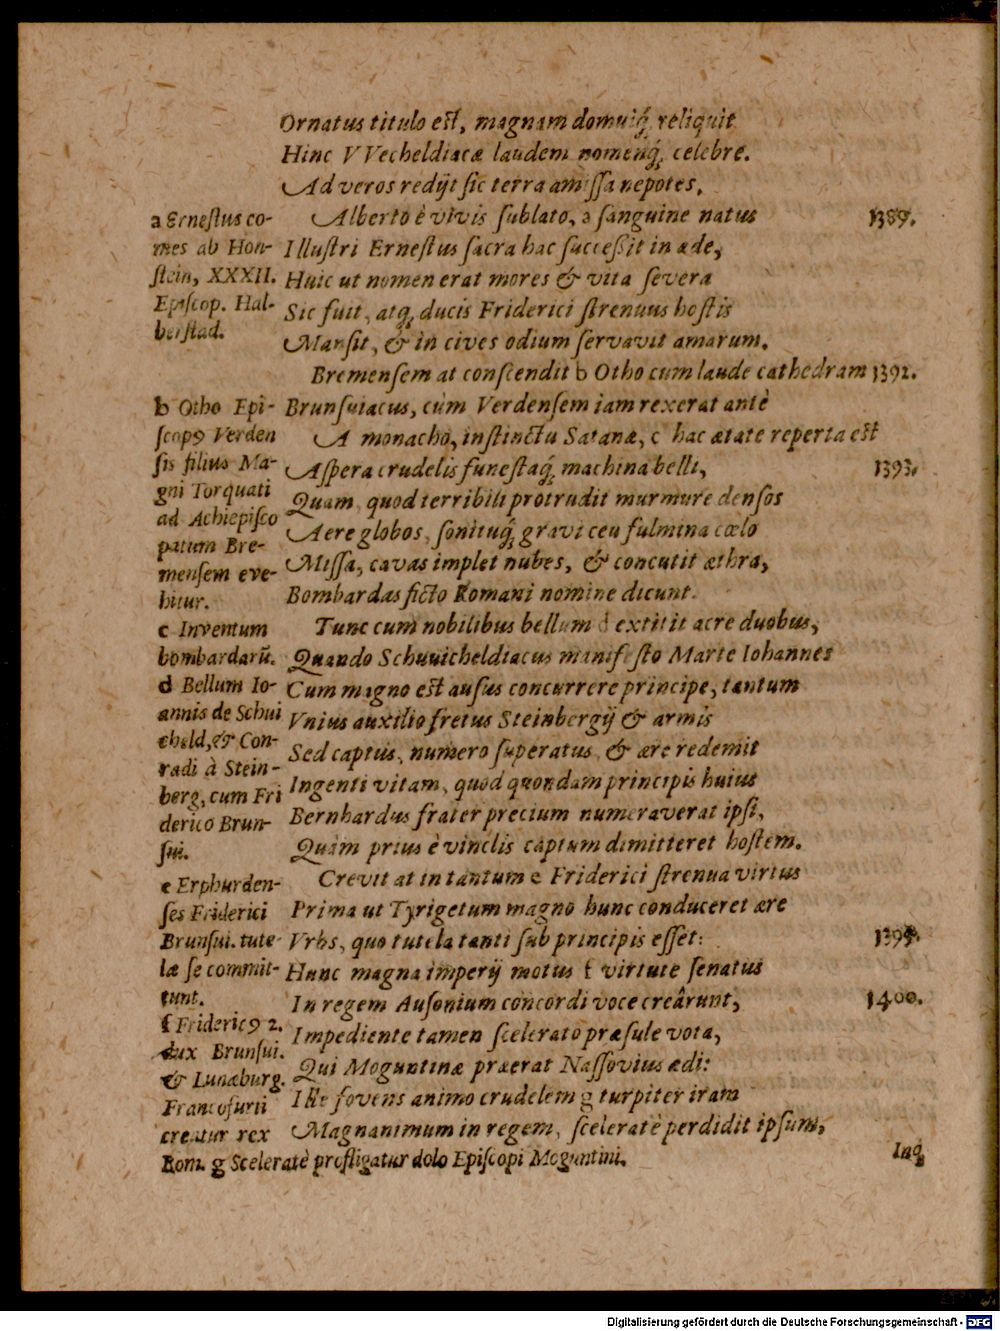 Ornatus titulo est, magnam domuiq́; reliquit
Hinc VVecheldiacæ laudem nomenq́; celebre.
Ad veros redijt sic terra amissa nepotes,
Alberto è vivis sublato, a sanguine natus 1389.
Illustri Ernestus sacra hac successit in æde,
Huic ut nomen erat mores & vita severa
Sic fuit, atq; ducis Friderici strenuus hostis
Mansit, & in cives odium servavit amarum.
Bremensem at conscendit b Otho cum laude cathedram 1392.
Brunsuiacus, cùm Verdensem iam rexerat antè
A monacho, instinctu Satanæ, c hac ætate reperta est
Aspera crudelis funestaq́; machina belli, 1393.
Quam, quod terribili protrudit murmure densos
Aere globos, sonituq́; gravi ceu fulmina cœlo
Missa, cavas implet nubes, & concutit æthra,
Bombardas ficto Romani nomine dicunt.
Tunc cum nobilibus bellum d extitit acre duobus,
Quando Schuuicheldiacus manifesto Marte Iohannes
Cum magno est ausus concurrere principe, tantum
Vnius auxilio fretus Steinbergij & armis
Sed captus, numero superatus, & ære redemit
Ingenti vitam, quod quondam principis huius
Bernhardus frater precium numeraverat ipsi,
Quàm prius è vinclis captum dimitteret hostem.
Crevit at in tantum e Friderici strenua virtus
Prima ut Tyrigetum magno hunc conduceret ære
Vrbs, quo tutela tanti sub principis esset: 1394.
Hunc magna imperij motus f virtute senatus
In regem Ausonium concordi voce creârunt, 1400.
Impediente tamen scelerato præsule vota,
Qui Moguntinæ præerat Nassovius ædi:
Ille fovens animo crudelem g turpiter iram
Magnanimum in regem, sceleratè perdidit ipsum,
Inq;
a Ernestus co-
mes ab Hon-
stein, XXXII.
Episcop. Hal-
berstad.
b Otho Epi-
scopꝰ Verden
sis filius Ma-
gni Torquati
ad Achiepisco
patum Bre-
mensem eve-
hitur.
c Inventum
bombardarũ.
d Bellum Io-
annis de Schui
cheld, & Con-
radi à Stein-
berg, cum Fri
derico Brun-
sui.
e Erphurden-
ses Friderici
Brunsui. tute-
læ se commit-
tunt.
f Fridericꝰ 2.
dux Brunsui.
& Lunæburg.
Francofurii
creatur rex
Rom. g Sceleratè profligatur dolo Episcopi Moguntini.
Digitalisierung gefördert durch die Deutsche Forschungsgemeinschaft - DFG